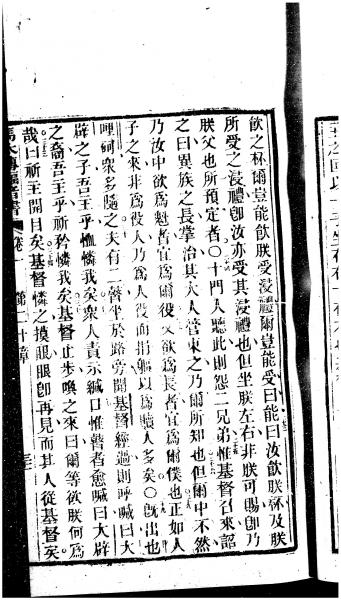 飲之杯爾豈能飲朕受浸禮爾豈能受曰能曰汝飲朕杯及朕
所受之浸禮卽汝亦受其浸禮也但坐朕左右非朕可賜卽乃
朕父也所預定者〇十門人聽此則怨二兄弟惟基督召來詔
之曰異族之長掌治其人大人管束之乃爾所知也但爾中不然
乃汝中欲爲魁者宜爲爾役又欲爲長者宜爲爾僕也正如人
子之來非爲役人乃爲人役而捐軀以爲贖人多矣〇旣出也
哩𠸄衆多隨之夫有二瞽坐於路旁聞基督經過則呼喊曰大
辟之子吾主乎恤憐我矣衆人責示緘口惟瞽者愈喊曰大辟
之裔吾主乎祈矜憐我矣基督止步喚之來曰爾等欲朕何爲
哉曰祈主開目矣基督憐之摸眼眼卽再見而其人從基督矣
卷一 第二十章